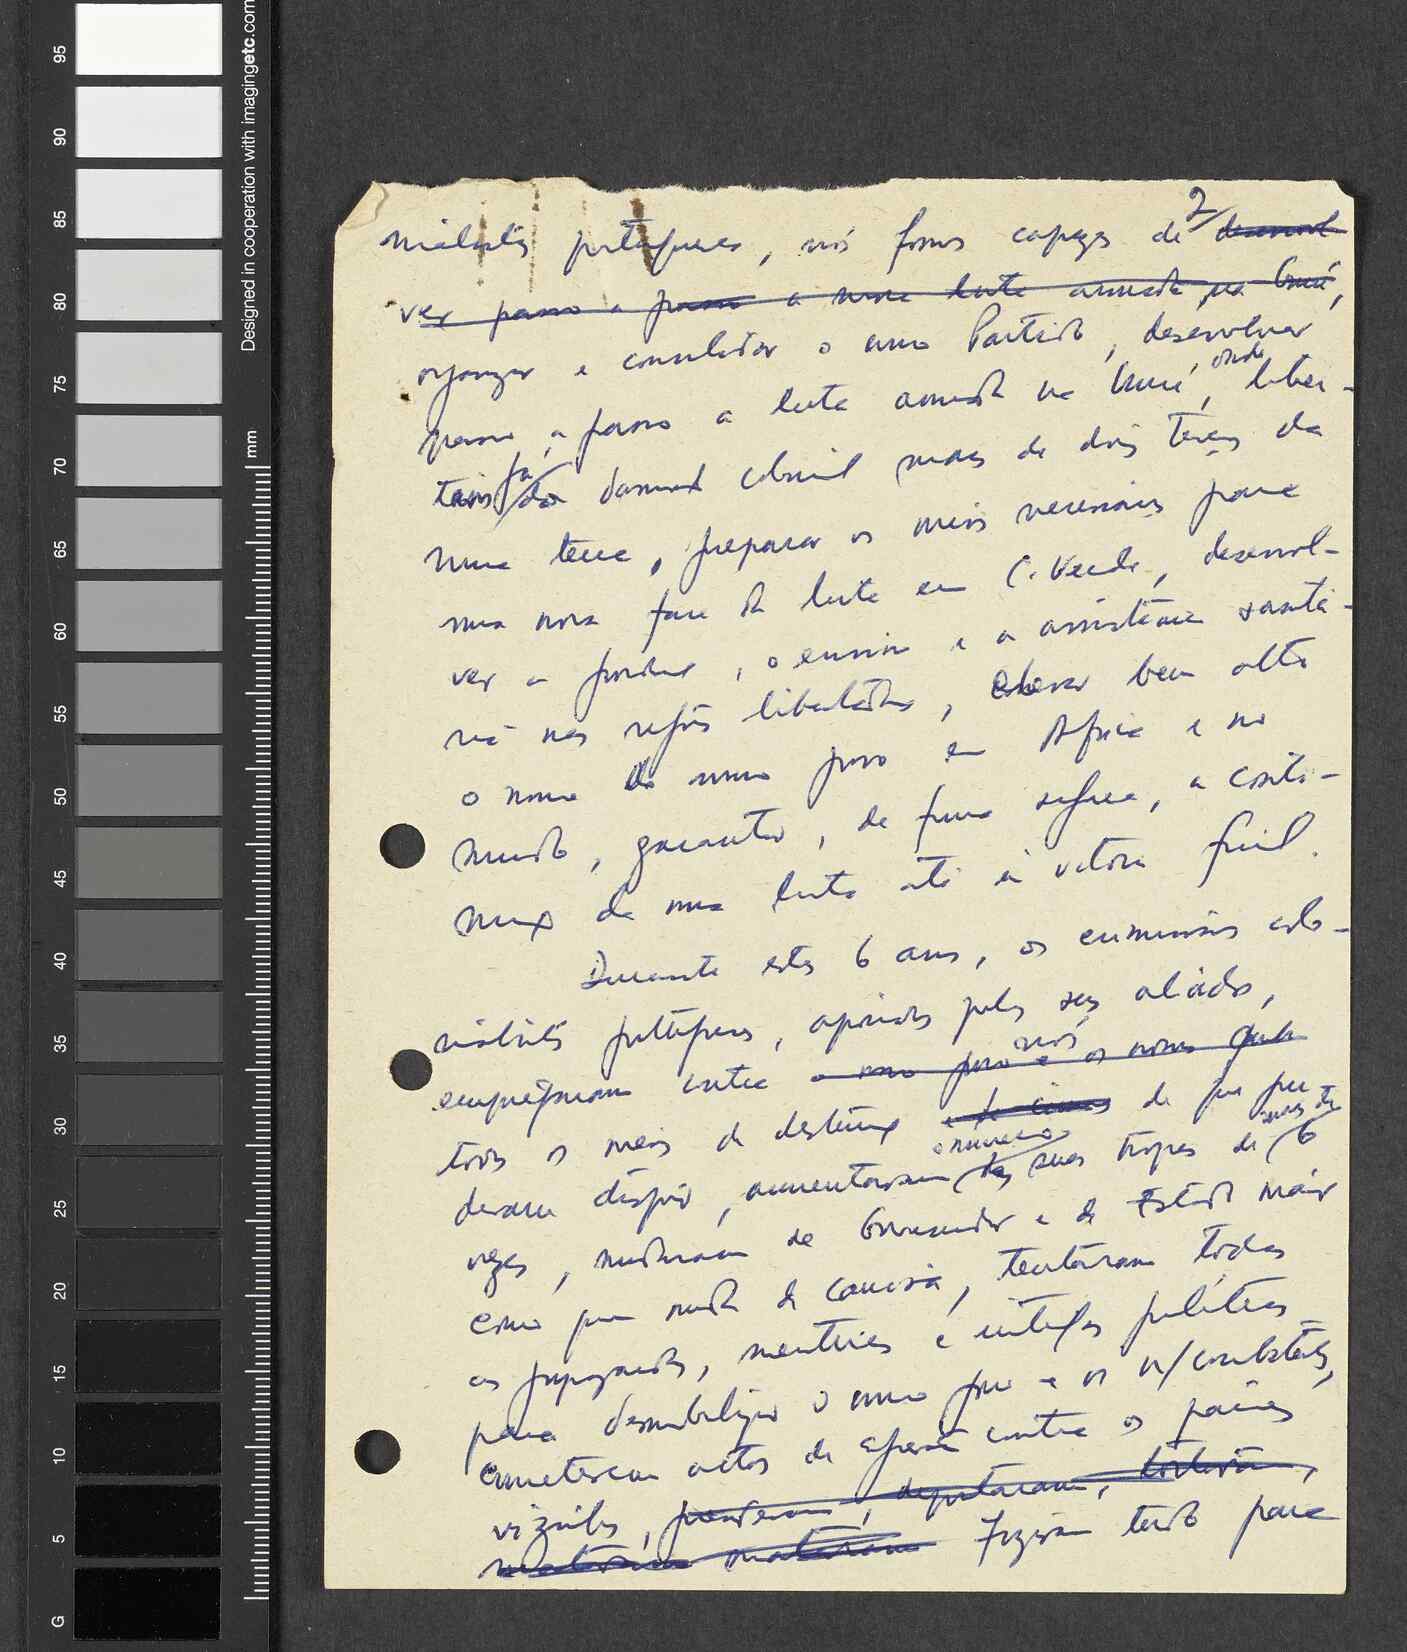 2
nialistas portugueses, nós fomos capazes de desenvol
ver passo a passo a nossa luta armada na Guiné,
organizar e consolidar o nosso Partido, desenvolver
passo a passo a luta armada na Guiné, onde liber-
támos já do domínio colonial mais de dois terços da
nossa terra, preparar os meios necessários para
uma nova fase da luta em C. Verde, desenvol-
ver a produção, o ensino e a assistência sanitá-
ria nas regiões libertadas, elevar bem alto
o nome do nosso povo em África e no
mundo, garantir, de forma segura, a conti-
nuação da nossa luta até à vitória final.
Durante estes 6 anos, os criminosos colo-
nialistas portugueses, apoiados pelos seus aliados,
empregaram contra o nosso povo e os nossos nós
todos os meios de destruição de que pu
deram dispôr, aumentaram o número das suas tropas de mais de 6
vezes, mudaram de Governador e de Estado Maior
como quem muda de camisa, tentaram todas
as propagandas, mentiras e intrigas políticas
para desmobilizar o nosso povo e os n/combatentes,
cometeram actos de agressão contra os países
vizinhos, prenderam, deportaram, torturaram,
mataram Fizeram tudo para
95
90
85
80
75
70
65
60
55
50
45
40
35
30
25
20
15
10
5
G
Designed in cooperation with imagingetc.com
mm